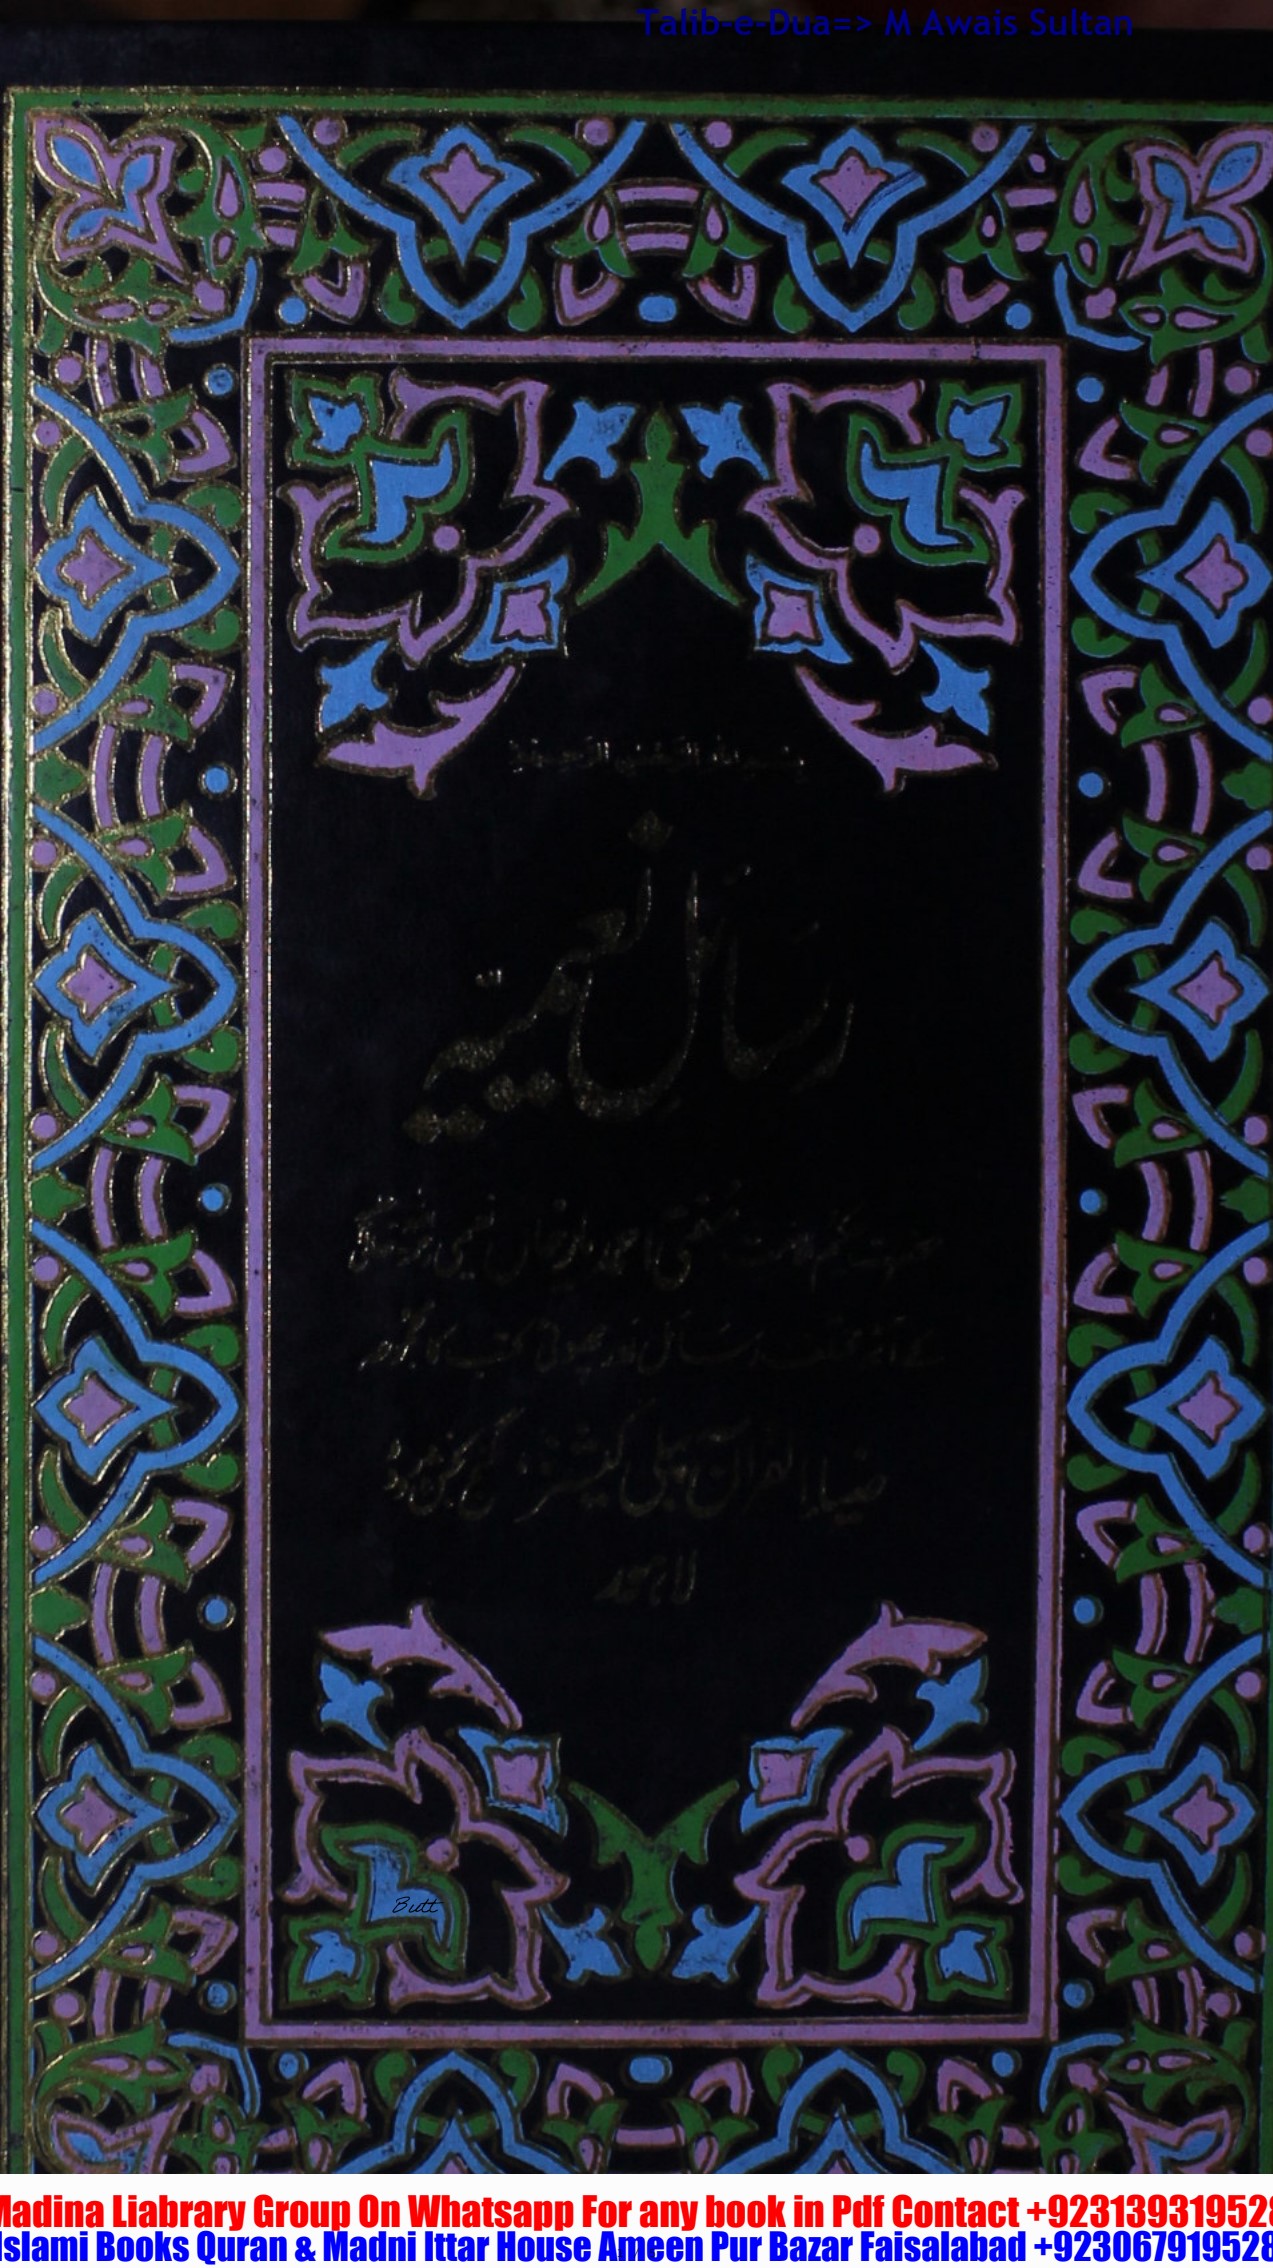 Talib-e-Dua=> M Awais Sultan
بسم الله الرحمن الرحيم
رسائل نعیمیہ
حکیم الامت مفتی احمد یار خان نعیمی
کے آٹھ مختلف رسائل اور چھوٹی کتب کا مجموعہ
ضیاء القرآن پبلی کیشنز، گنج بخش روڈ
لاہور
Butt
Madina Liabrary Group On Whatsapp For any book in Pdf Contact +923139319528
Islami Books Quran & Madni Ittar House Ameen Pur Bazar Faisalabad +923067919528